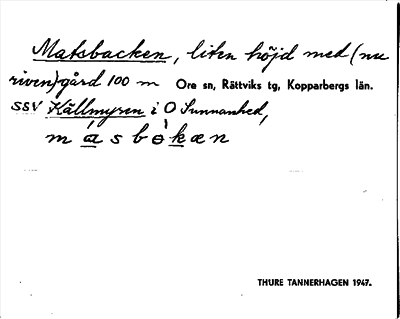 Matsbacken, liten höjd med (nu
riven) gård 100 m Ore sn, Rättviks tg, Kopparbergs län.
SSV Källmyren i O Sunnanhed,
THURE TANNERHAGEN 1947.